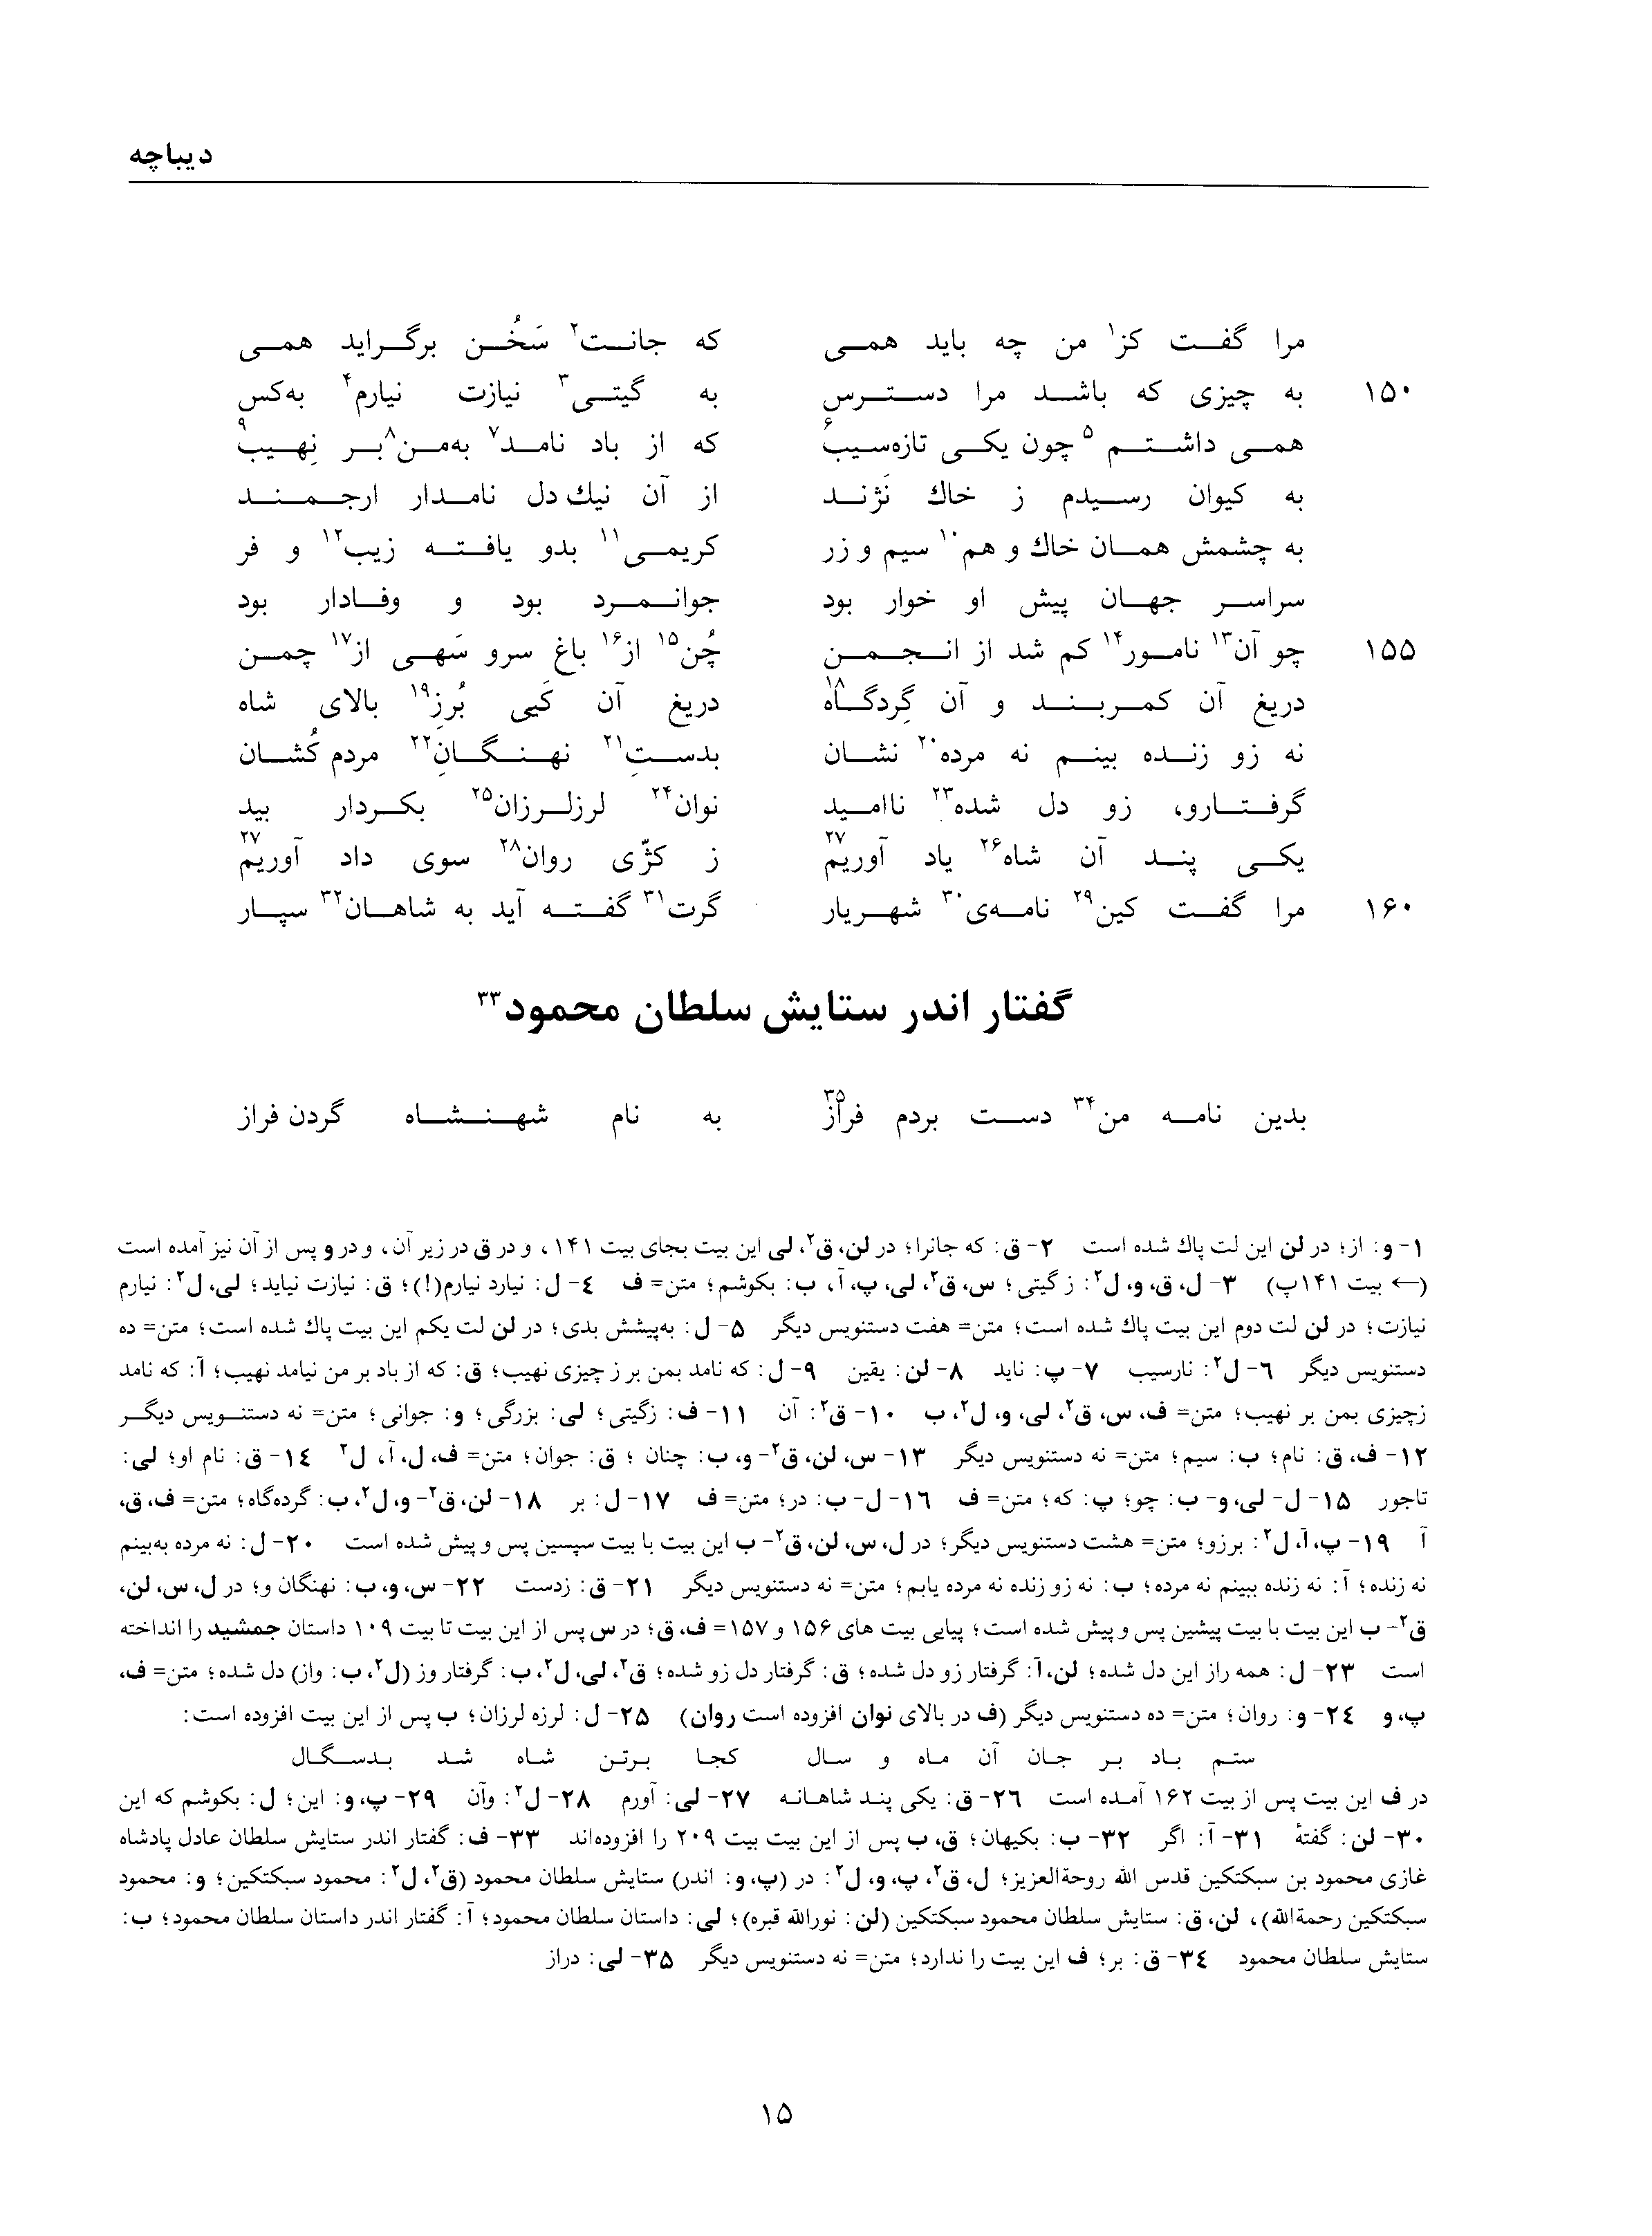 دیباچه
مرا گفت کز۱ من چه باید همی که جانت۲ سَخُن برگراید همی
۱۵۰ به چیزی که باشد مرا دسترس به گیتی۳ نیازت نیارم۴ به‌کس
همی داشتم۵ چون یکی تازه‌سیب۶ که از باد نامد۷ به‌من۸ بر نِهیب۹
به کیوان رسیدم ز خاك نَژند از آن نیك‌دل نامدار ارجمند
به چشمش همان خاك و هم۱۰ سیم و زر کریمی۱۱ بدو یافته زیب۱۲ و فر
سراسر جهان پیش او خوار بود جوانمرد بود و وفادار بود
۱۵۵ چو آن۱۳ نامور۱۴ کم شد از انجمن چُن۱۵ از۱۶ باغ سرو سَهی از۱۷ چمن
دریغ آن کمربند و آن گِردگاه۱۸ دریغ آن کَیی بُرزِ۱۹ بالای شاه
نه زو زنده بینم نه مرده۲۰ نشان بدستِ۲۱ نهنگانِ۲۲ مردم کُشان
گرفتارو، زو دل شده۲۳ ناامید نوان۲۴ لرزلرزان۲۵ بکردار بید
یکی پند آن شاه۲۶ یاد آوریم۲۷ ز کژّی روان۲۸ سوی داد آوریم۲۷
۱۶۰ مرا گفت کین۲۹ نامه‌ی۳۰ شهریار گرت۳۱ گفته آید به شاهان۳۲ سپار
گفتار اندر ستایش سلطان محمود۳۳
بدین نامه من۳۴ دست بردم فراز۳۵ به نام شهنشاه گردن فراز
۱- و: از؛ در لن این لت پاك شده است ۲- ق: که جانرا؛ در لن، ق۲، لی این بیت بجای بیت ۱۴۱، و در ق در زیر آن، و در و پس از آن نیز آمده است
(← بیت ۱۴۱پ) ۳- ل، ق، و، ل۲: ز گیتی؛ س، ق۲، لی، پ، آ، ب: بکوشم؛ متن= ف ۴- ل: نیارد نیارم(!)؛ ق: نیازت نیاید؛ لی، ل۲: نیارم
نیازت؛ در لن لت دوم این بیت پاك شده است؛ متن= هفت دستنویس دیگر ۵- ل: به‌پیشش بدی؛ در لن لت یکم این بیت پاك شده است؛ متن= ده
دستنویس دیگر ۶- ل۲: نارسیب ۷- پ: ناید ۸- لن: یقین ۹- ل: که نامد بمن بر ز چیزی نهیب؛ ق: که از باد بر من نیامد نهیب؛ آ: که نامد
زچیزی بمن بر نهیب؛ متن= ف، س، ق۲، لی، و، ل۲، ب ۱۰- ق۲: آن ۱۱- ف: زگیتی؛ لی: بزرگی؛ و: جوانی؛ متن= نه دستنویس دیگر
۱۲- ف، ق: نام؛ ب: سیم؛ متن= نه دستنویس دیگر ۱۳- س، لن، ق۲- و، ب: چنان ؛ ق: جوان؛ متن= ف، ل، آ، ل۲ ۱۴- ق: نام او؛ لی:
تاجور ۱۵- ل- لی، و- ب: چو؛ پ: که؛ متن= ف ۱۶- ل- ب: در؛ متن= ف ۱۷- ل: بر ۱۸- لن، ق۲- و، ل۲، ب: گرده‌گاه؛ متن= ف، ق،
آ ۱۹- پ، آ، ل۲: برزو؛ متن= هشت دستنویس دیگر؛ در ل، س، لن، ق۲- ب این بیت با بیت سپسین پس و پیش شده است ۲۰- ل: نه مرده به‌بینم
نه زنده؛ آ: نه زنده ببینم نه مرده؛ ب: نه زو زنده نه مرده یابم؛ متن= نه دستنویس دیگر ۲۱- ق: زدست ۲۲- س، و، ب: نهنگان و؛ در ل، س، لن،
ق۲- ب این بیت با بیت پیشین پس و پیش شده است؛ پیاپی بیت های ۱۵۶ و ۱۵۷= ف، ق؛ در س پس از این بیت تا بیت ۱۰۹ داستان جمشید را انداخته
است ۲۳- ل: همه راز این دل شده؛ لن، آ: گرفتار زو دل شده؛ ق: گرفتار دل زو شده؛ ق۲، لی، ل۲، ب: گرفتار وز (ل۲، ب: واز) دل شده؛ متن= ف،
پ، و ۲۴- و: روان؛ متن= ده دستنویس دیگر (ف در بالای نوان افزوده است روان) ۲۵- ل: لرزه لرزان؛ ب پس از این بیت افزوده است:
ستم باد بر جان آن ماه و سال کجا برتن شاه شد بدسگال
در ف این بیت پس از بیت ۱۶۲ آمده است ۲۶- ق: یکی پند شاهانه ۲۷- لی: آورم ۲۸- ل۲: وآن ۲۹- پ، و: این؛ ل: بکوشم که این
۳۰- لن: گفتهٔ ۳۱- آ: اگر ۳۲- ب: بکیهان؛ ق، ب پس از این بیت بیت ۲۰۹ را افزوده‌اند ۳۳- ف: گفتار اندر ستایش سلطان عادل پادشاه
غازی محمود بن سبکتکین قدس الله روحةالعزیز؛ ل، ق۲، پ، و، ل۲: در (پ، و: اندر) ستایش سلطان محمود (ق۲، ل۲: محمود سبکتکین؛ و: محمود
سبکتکین رحمةالله)، لن، ق: ستایش سلطان محمود سبکتکین (لن: نورالله قبره)؛ لی: داستان سلطان محمود؛ آ: گفتار اندر داستان سلطان محمود؛ ب:
ستایش سلطان محمود ۳۴- ق: بر؛ ف این بیت را ندارد؛ متن= نه دستنویس دیگر ۳۵- لی: دراز
۱۵